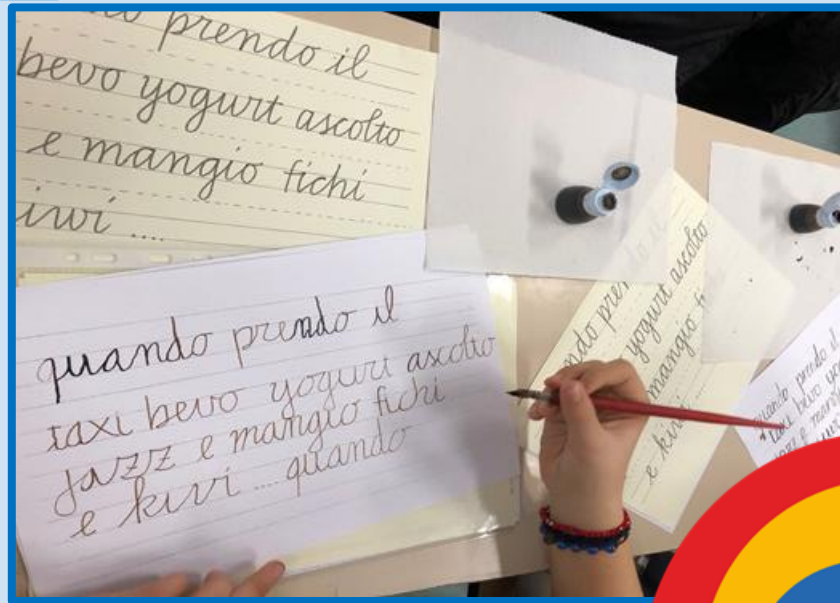 do prendo il
bevo yogurt ascolto
e mangio fichi
iwi ....
quando prendo il
taxi bevo yogurt ascolto
jazz e mangio fichi
e kivi .... quando
ndo pren il
yogurt ascolto
mangio fi
e kiwi ....
quando prendo il
taxi bevo yog
jazz e man